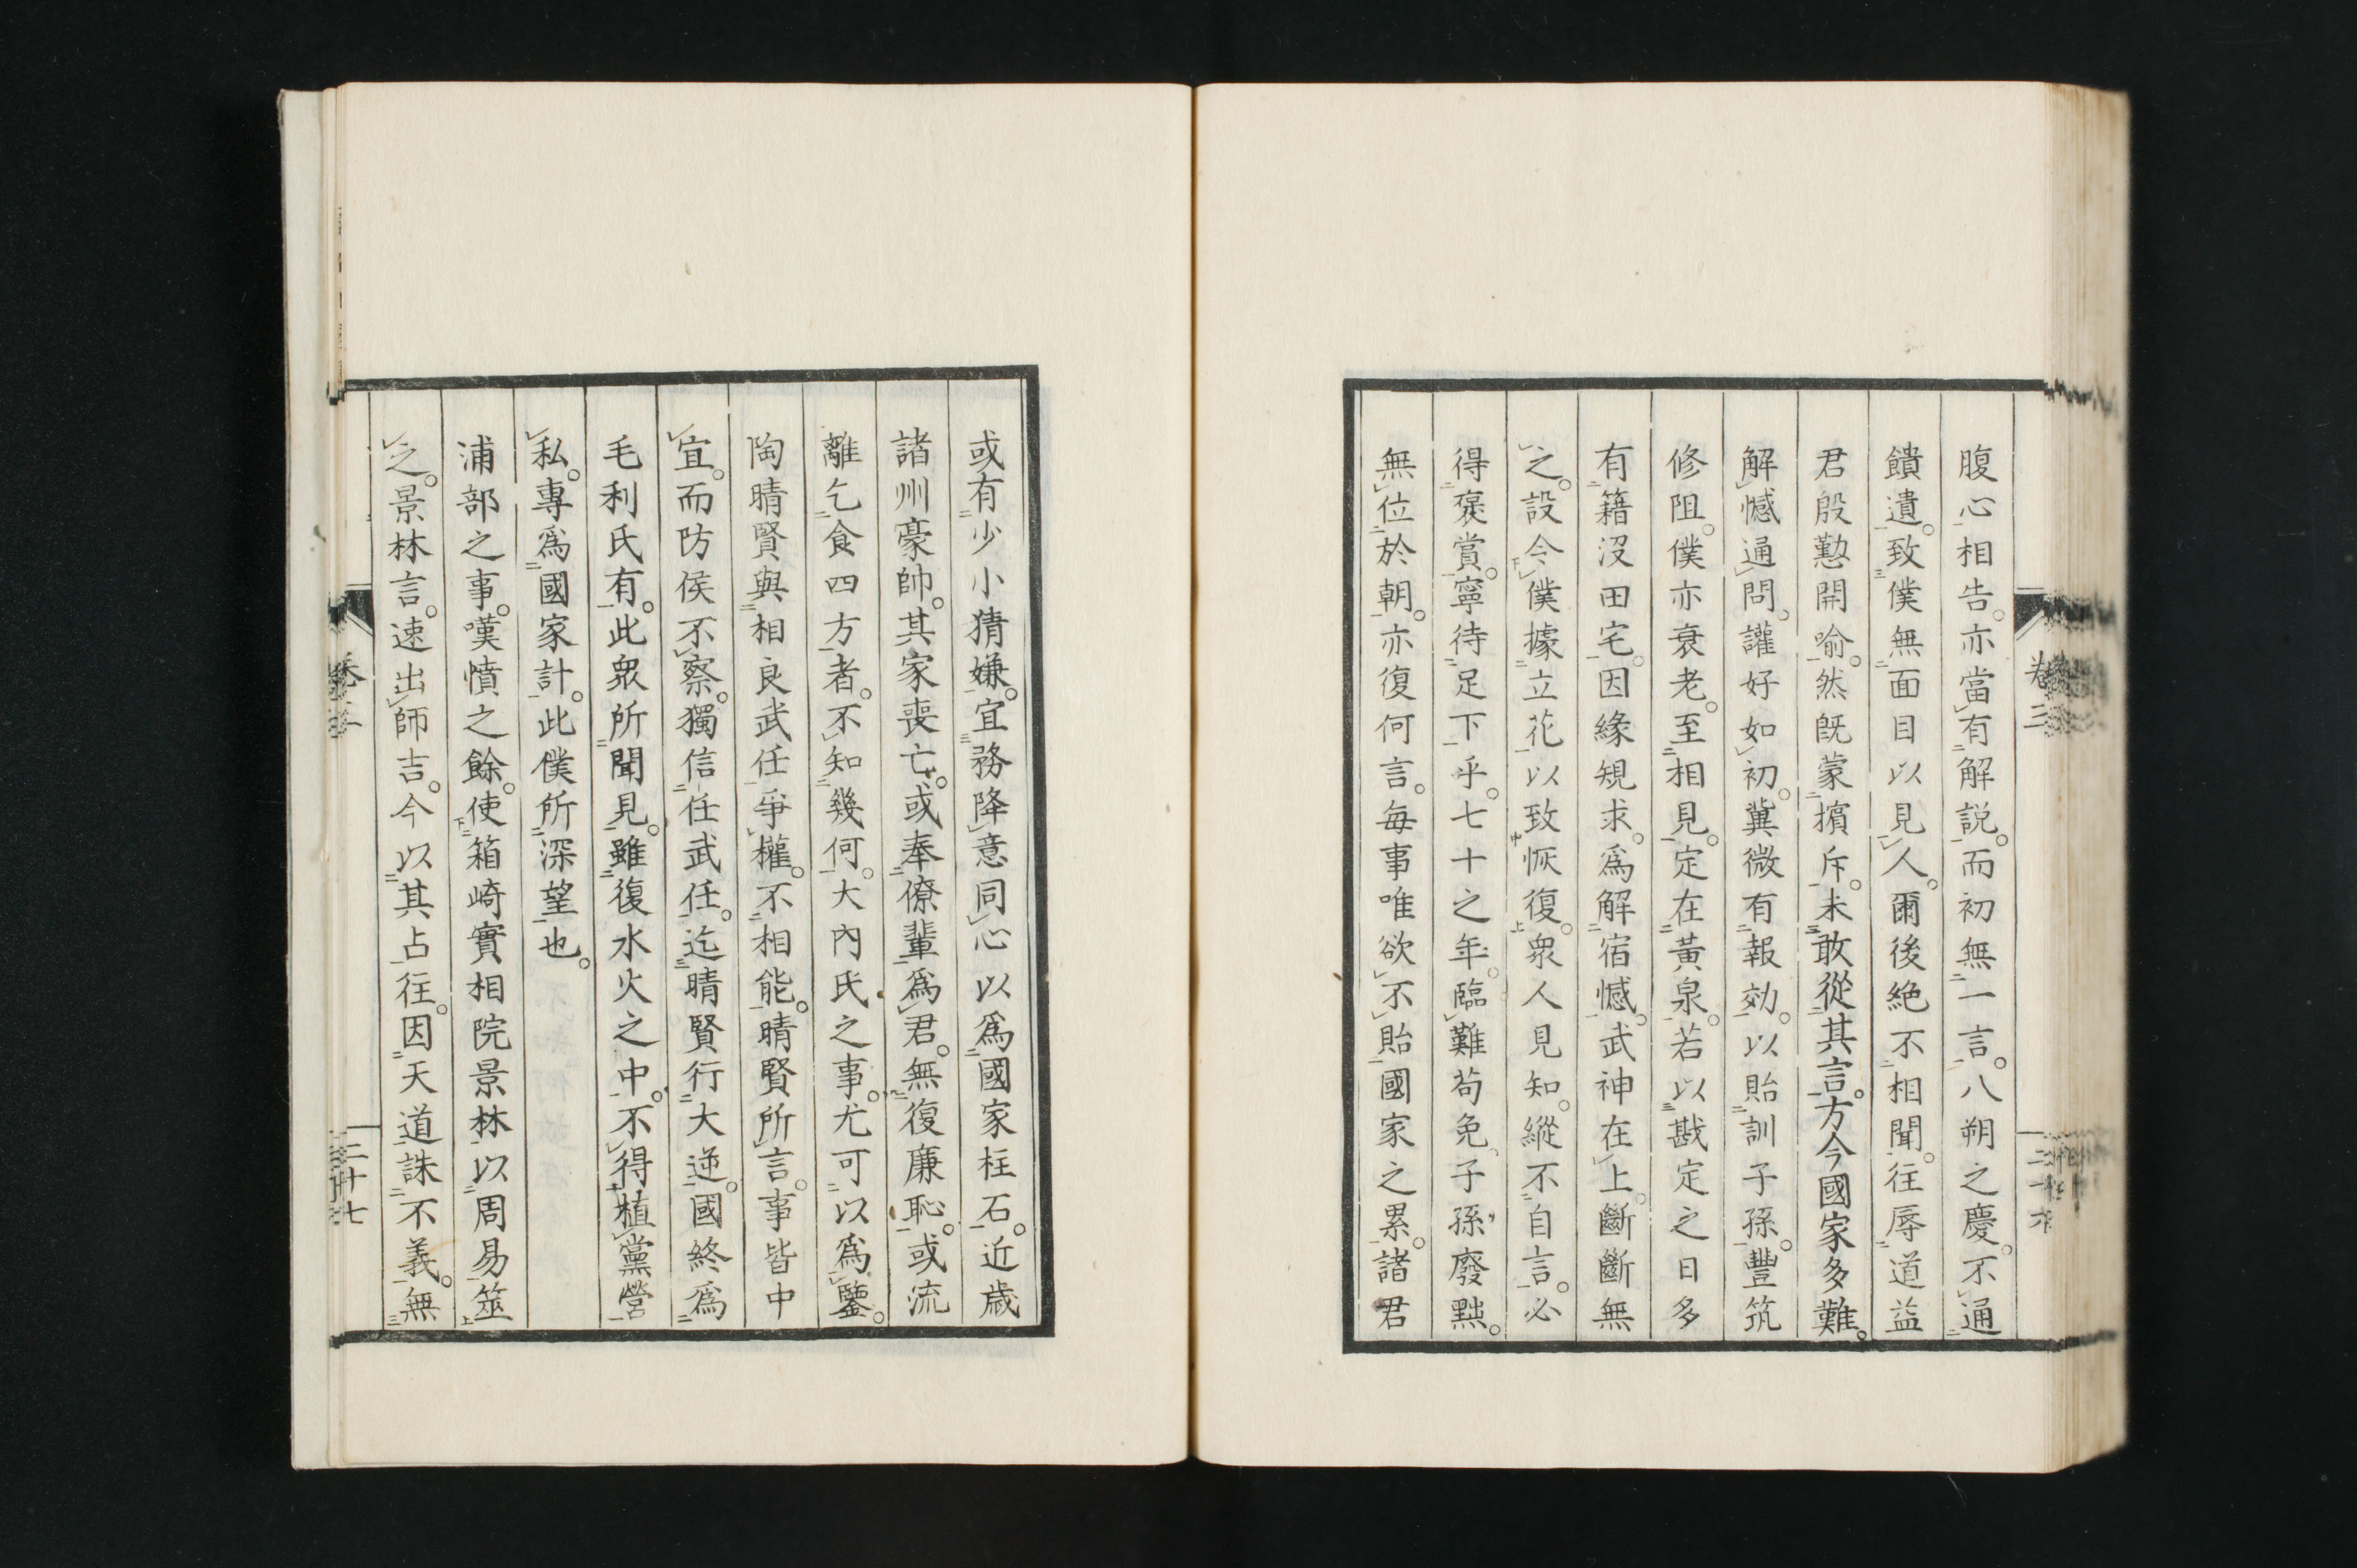 腹心相告。亦當有解説。而初無一言。八朔之慶。不通
饋遺。致僕無面目以見人。爾後絶不相聞。往辱道益
君殷懃開喻。然既蒙擯斥。未敢從其言。方今國家多難。
解憾通問。讙好如初。冀微有報効。以貽訓子孫。豐筑
修阻。僕亦衰老。至相見。定在黃泉。若以戡定之日多
有籍沒田宅。因緣規求。爲解宿憾。武神在上。斷斷無
之。設令僕據立花以致恢復。衆人見知。縱不自言。必
得襃賞。寧待足下乎。七十之年。臨難苟免、子孫廢黜。
無位於朝。亦復何言。每事唯欲不貽國家之累。諸君
或有少小猜嫌。宜務降意同心以爲國家柱石。近歲
諸州豪帥。其家喪亡。或奉僚輩爲君。無復廉恥。或流
離乞食四方者。不知幾何。大內氏之事。尤可以爲鑒。
陶晴賢與相良武任爭權。不相能。晴賢所言。事皆中
宜。而防侯不察。獨信任武任。迄晴賢行大逆。國終爲
毛利氏有。此衆所聞見。雖復水火之中。不得植黨營
私。專爲國家計。此僕所深望也。
浦部之事。嘆憤之餘。使箱崎實相院景林以周易筮
之。景林言。速出師吉。今以其占往。因天道誅不義。無
卷三
二十六
卷三
二十七